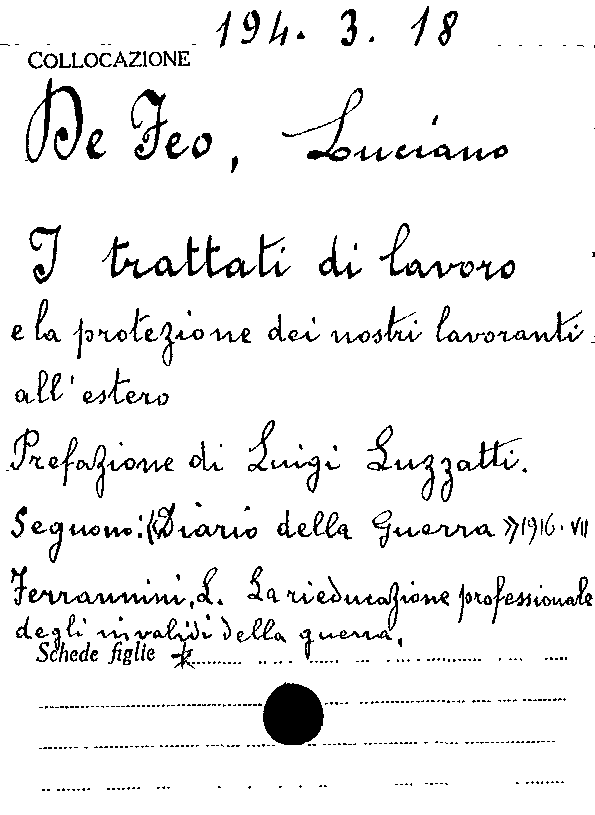 194. 3. 18
COLLOCAZIONE
De Feo, Luciano
I trattati di lavoro
e la protezione dei nostri lavoranti
all'estero
Prefazione di Luigi Luzzatti.
Seguono: «Diario della Guerra» 1916. VII
Ferrannini, L. La rieducazione professionale
degli invalidi della guerra.
Schede figlie *